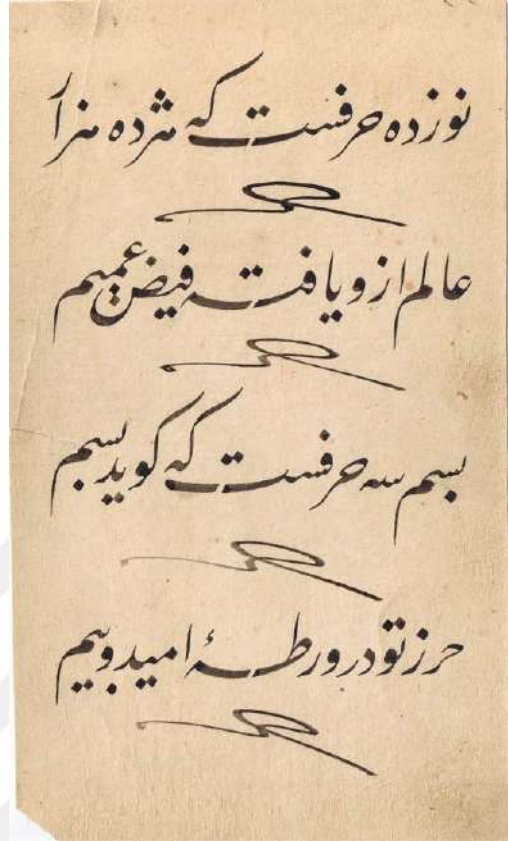 نوزده حرفست که هژده هزار
عالم ازو یافته فیض عمیم
بسم سه حرفست که کوید بسم
حرز تو در ورطهٔ امید و بیم